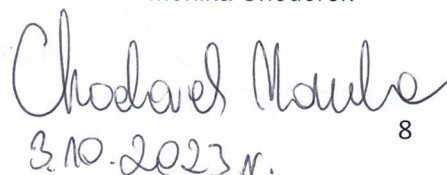 Chodorek Monika
8
3.10.2023 r.